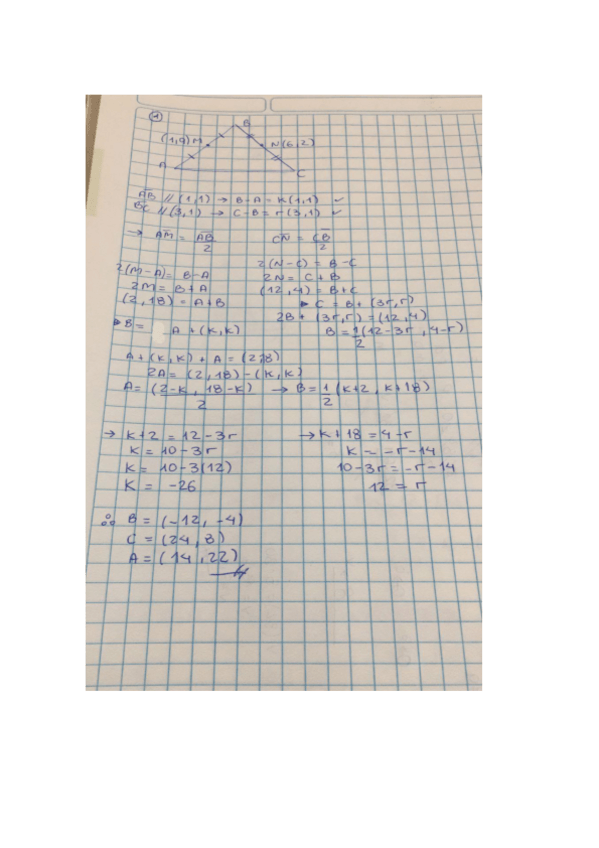 1
B
(1,9)M
N(6,2)
A
C
AB // (1,1) → B-A = K(1,1) ✓
BC // (3,1) → C-B = r(3,1) ✓
→ AM = AB/2
CN = CB/2
2(M-A) = B-A
2M = B+A
(2,18) = A+B
2(N-C) = B-C
2N = C+B
(12,4) = B+C
C = B + (3r,r)
2B + (3r,r) = (12,4)
B = 1/2 (12-3r, 4-r)
B = A + (K,K)
A + (K,K) + A = (2,18)
2A = (2,18) - (K,K)
A = (2-K, 18-K)/2 → B = 1/2 (K+2, K+18)
→ K+2 = 12-3r
K = 10-3r
K = 10-3(12)
K = -26
→ K+18 = 4-r
K = -r-14
10-3r = -r-14
12 = r
∴ B = (-12, -4)
C = (24, 8)
A = (14, 22)